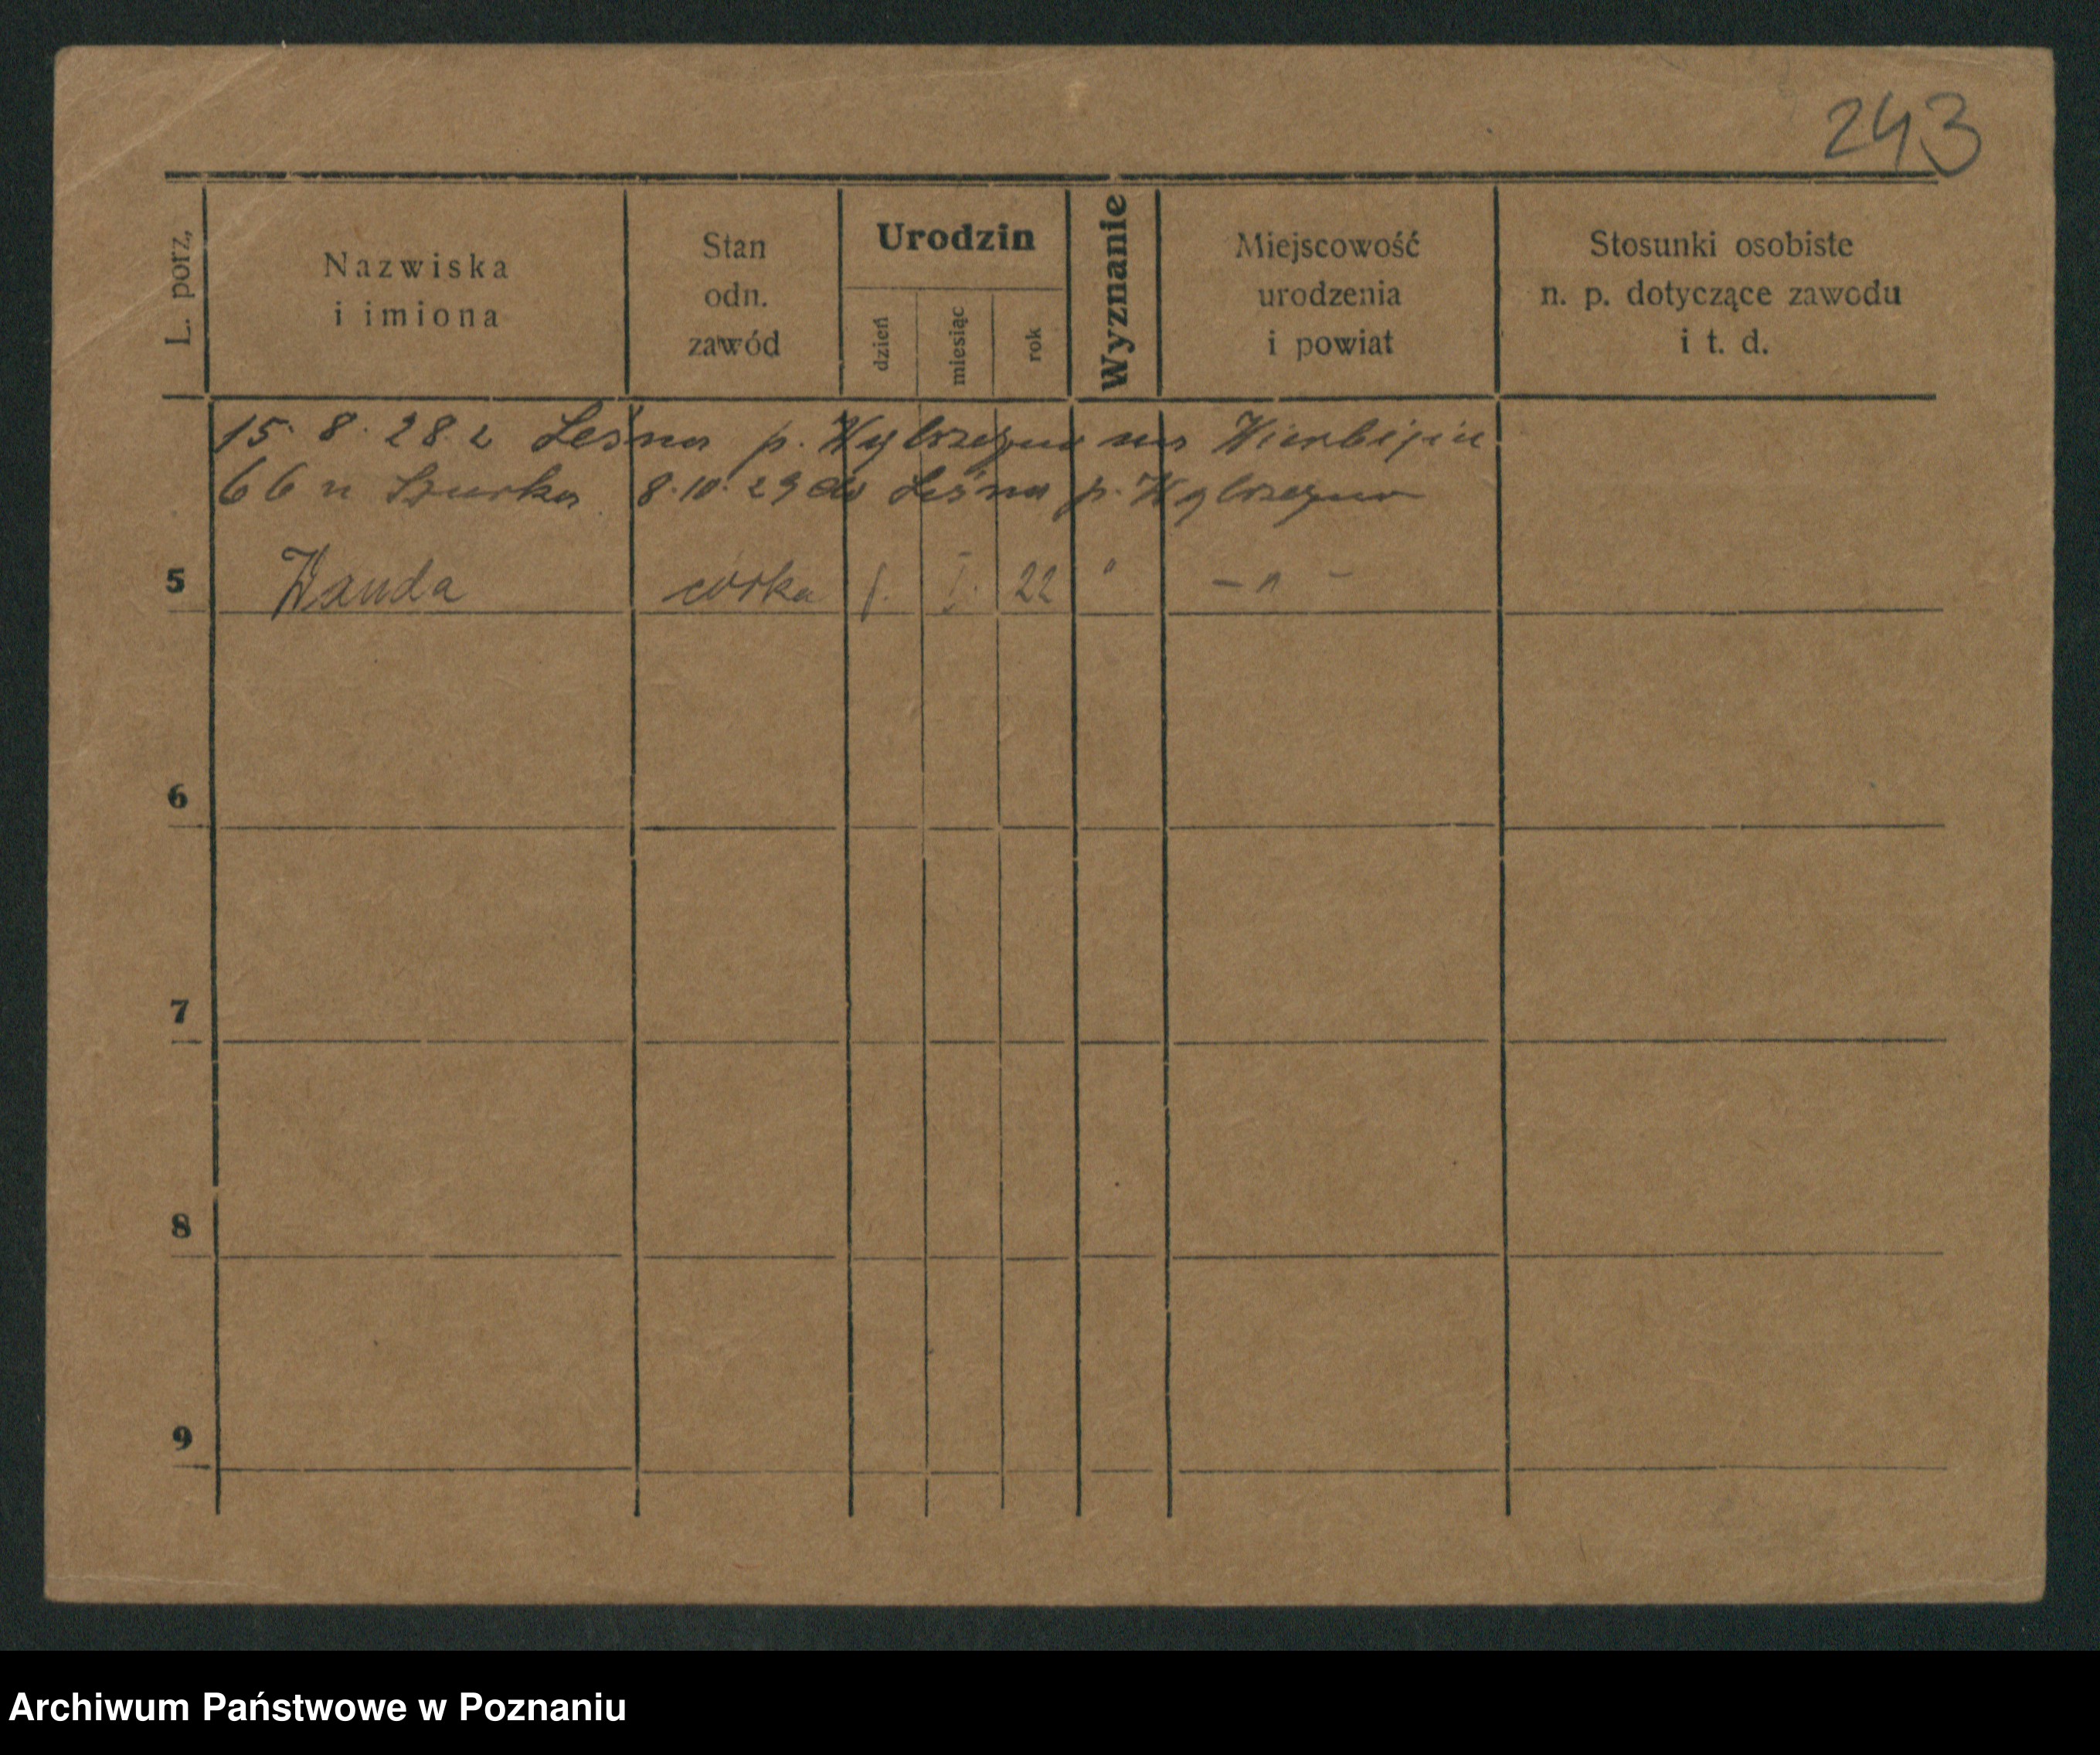 243
L. porz,
Nazwiska
i imiona
Stan
odn.
zawód
Urodzin
dzień
miesiąc
rok
Wyznanie
Miejscowość
urodzenia
i powiat
Stosunki osobiste
n. p. dotyczące zawodu
i t. d.
15. 8. 28 z Leśna p. na
66 u 8.10.29 do Leśna p.
5 Wanda córka 1. I. 22 " – " –
6
7
8
9
Archiwum Państwowe w Poznaniu